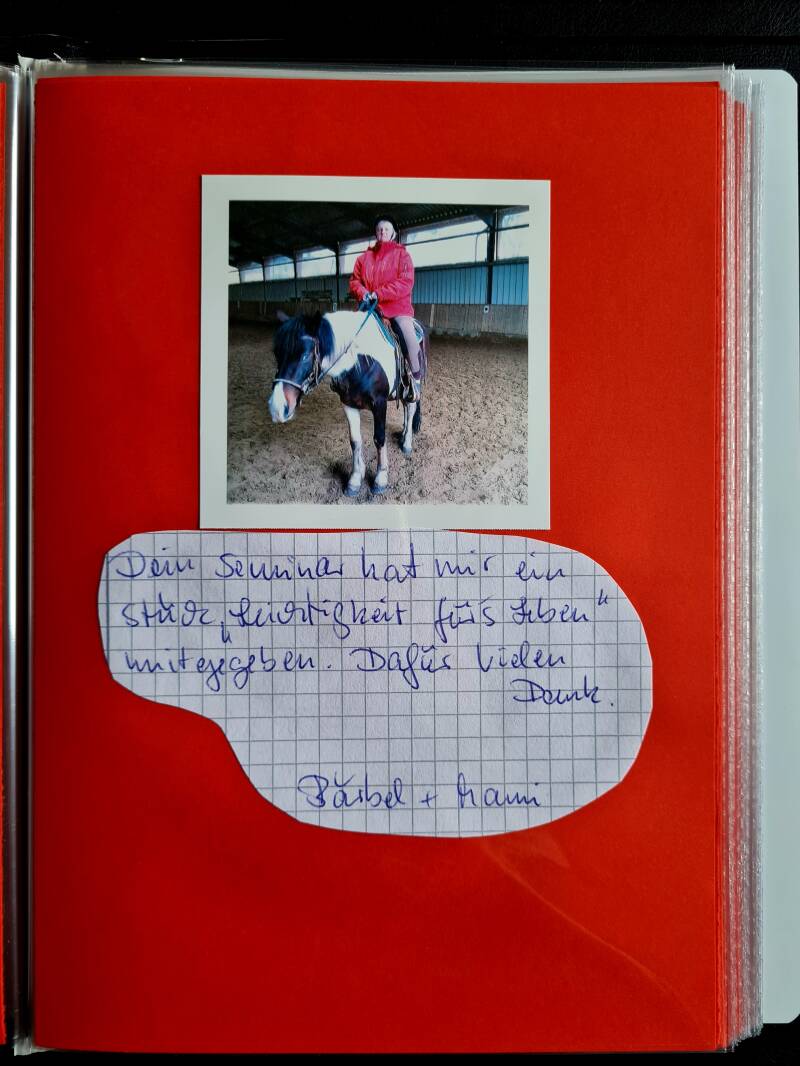 Dein Seminar hat mir ein
Stück „Leichtigkeit fürs Leben“
mitgegeben. Dafür vielen
Dank.
Bärbel +